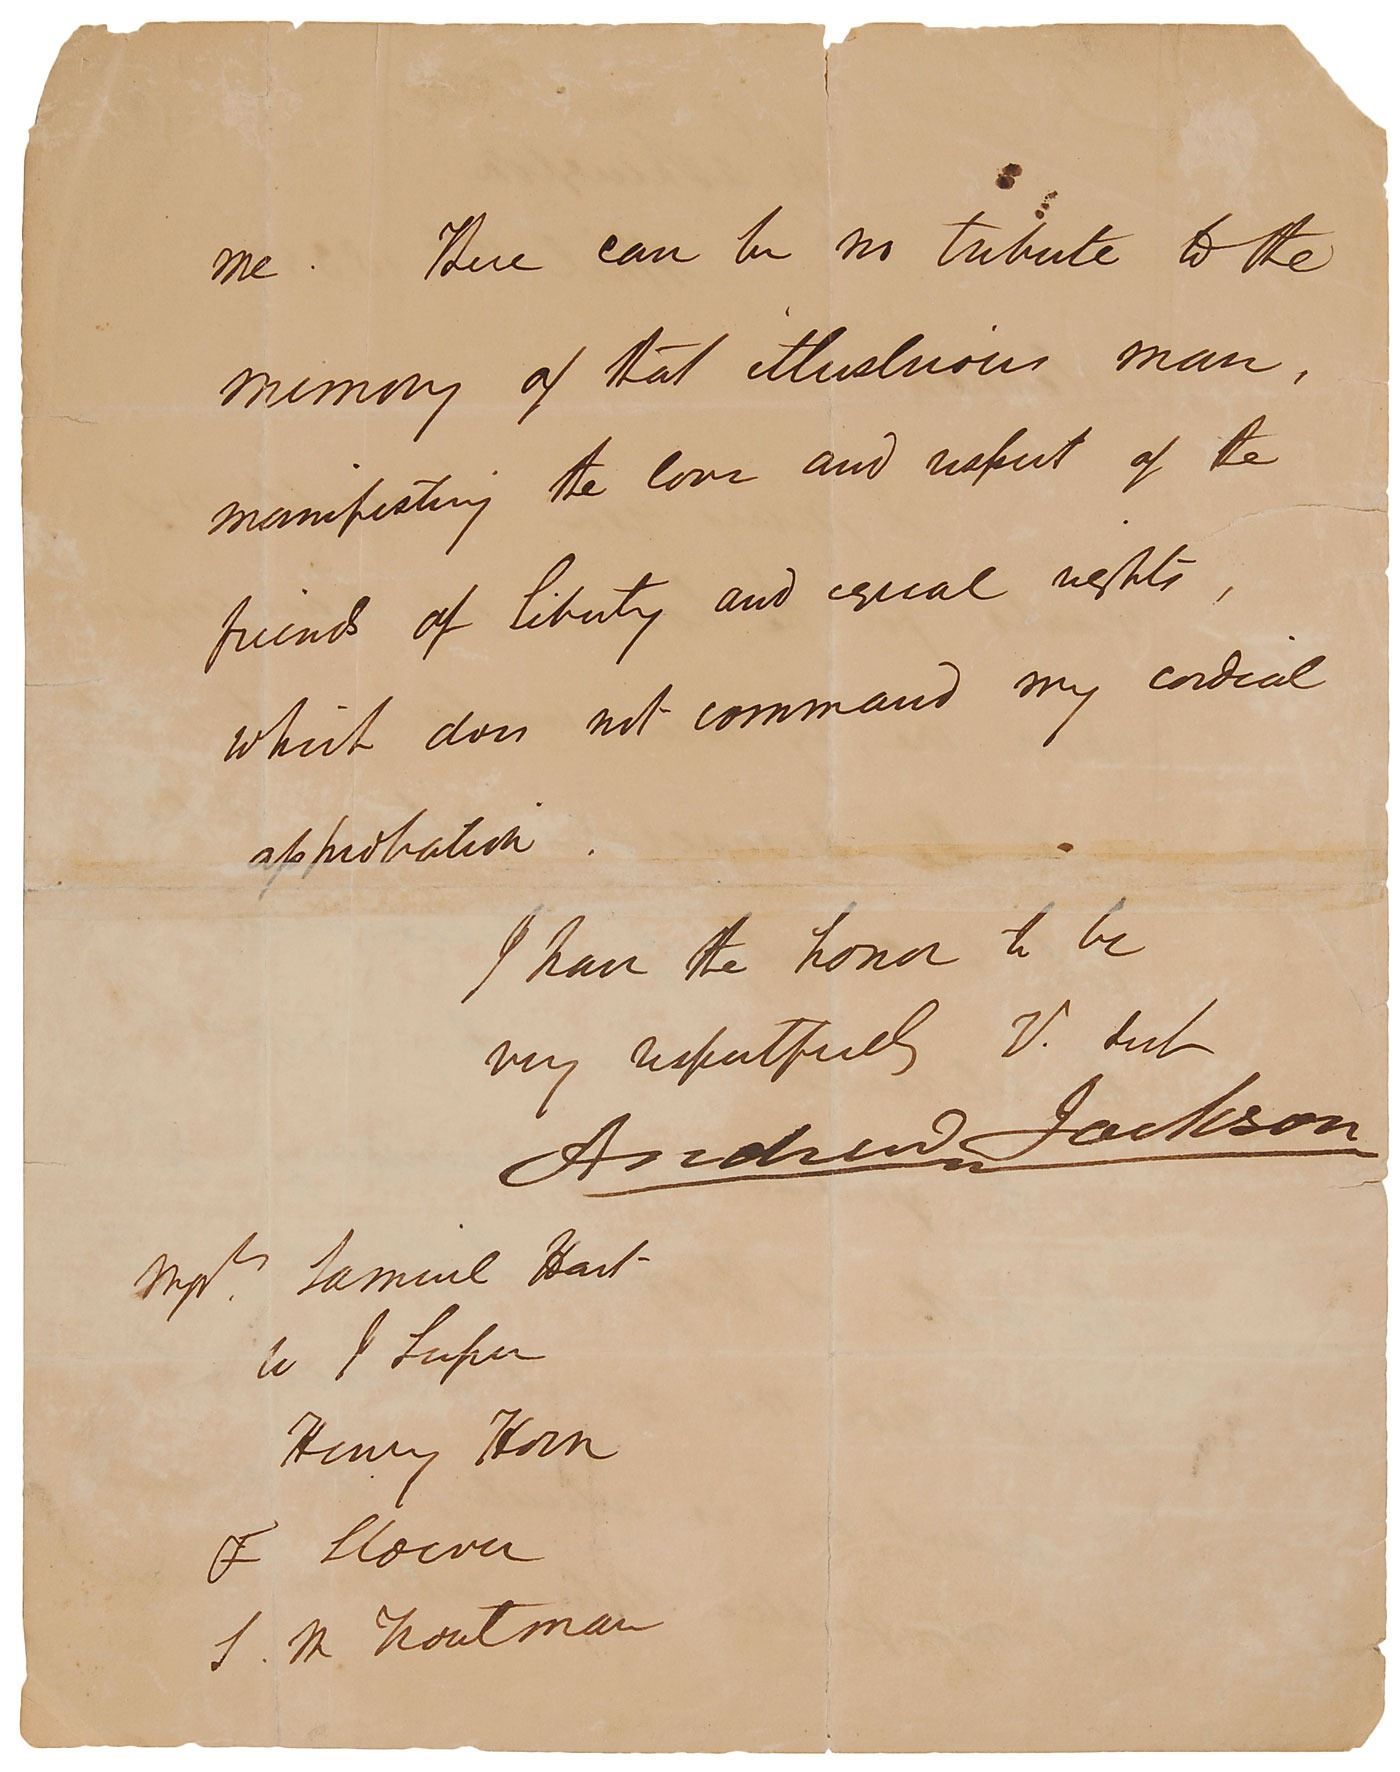 me. There can be no tribute to the
memory of that illustrious man,
manifesting the love and respect of the
friends of liberty and equal rights,
which does not command my cordial
approbation.
I have the honor to be
very respectfully Y. svt
Andrew Jackson
Messrs. Samuel Hart
W J Leiper
Henry Horn
F Stoever
J. M Troutman